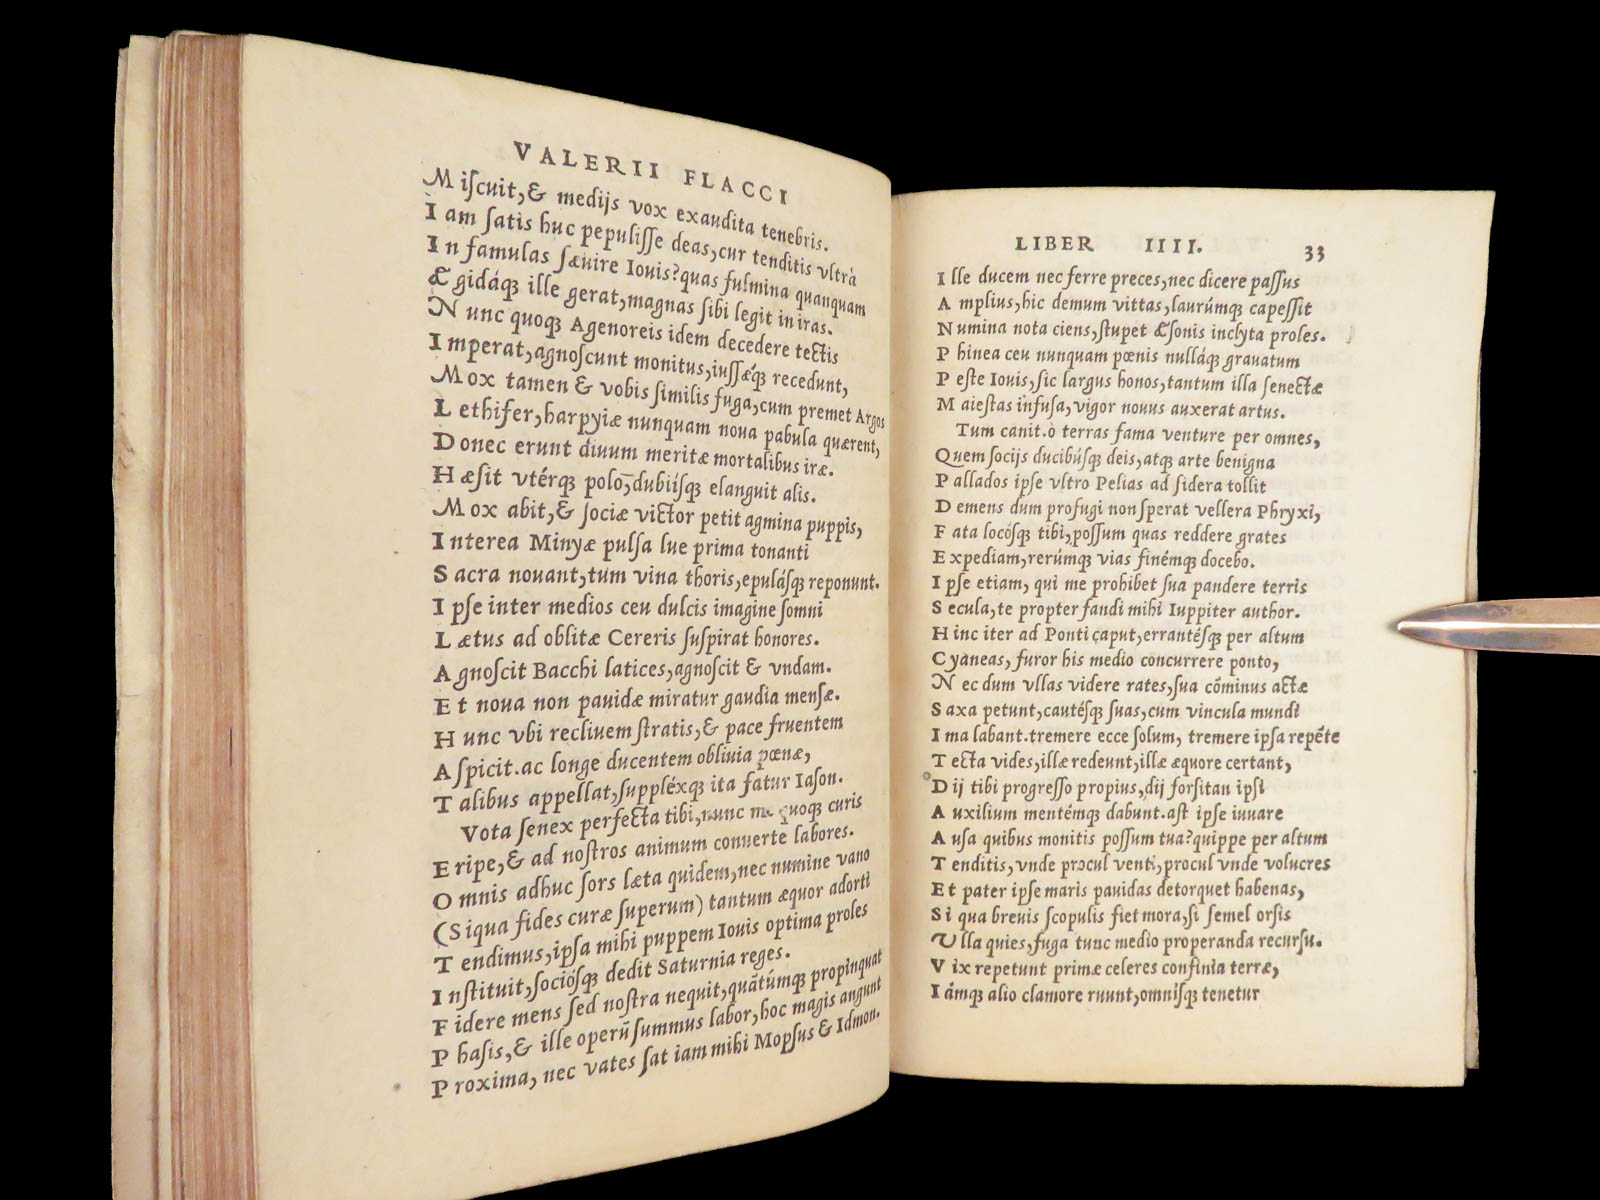 VALERII FLACCI
Miſcuit,& medijs vox exaudita tenebris.
Iam ſatis huc pepuliſſe deas,cur tenditis vltrà
In famulas ſæuire Iouis?quas fulmina quanquam
Ægidáq; ille gerat,magnas ſibi legit in iras.
Nunc quoq; Agenoreis idem decedere tectis
Imperat,agnoſcunt monitus,iuſſæq́; recedunt,
Mox tamen & vobis ſimilis fuga,cum premet Argos
Lethifer,harpyiæ nunquam noua pabula quærent,
Donec erunt diuum meritæ mortalibus iræ.
Hæſit vtérq; polo,dubiíſq; elanguit alis.
Mox abit,& ſociæ victor petit agmina puppis,
Interea Minyæ pulſa lue prima tonanti
Sacra nouant,tum vina thoris,epuláſq; reponunt.
Ipſe inter medios ceu dulcis imagine ſomni
Lætus ad oblitæ Cereris ſuſpirat honores.
Agnoſcit Bacchi latices,agnoſcit & vndam.
Et noua non pauidæ miratur gaudia menſæ.
Hunc vbi recliuem ſtratis,& pace fruentem
Aſpicit.ac longe ducentem obliuia pœnæ,
Talibus appellat,ſuppléxq; ita fatur Iaſon.
Vota ſenex perfecta tibi,nunc me quoq; curis
Eripe,& ad noſtros animum conuerte labores.
Omnis adhuc ſors læta quidem,nec numine vano
(Siqua fides curæ ſuperum) tantum æquor adorti
Tendimus,ipſa mihi puppem Iouis optima proles
Inſtituit,ſocióſq; dedit Saturnia reges.
Fidere mens ſed noſtra nequit,quãtúmq; propinquat
Phaſis,& ille operũ ſummus labor,hoc magis angunt
Proxima, nec vates ſat iam mihi Mopſus & Idmon.
LIBER IIII. 33
Ille ducem nec ferre preces,nec dicere paſſus
Amplius,hic demum vittas,laurúmq; capeſſit
Numina nota ciens,ſtupet Æſonis inclyta proles.
Phinea ceu nunquam pœnis nulláq; grauatum
Peſte Iouis,ſic largus honos,tantum illa ſenectæ
Maieſtas infuſa,vigor nouus auxerat artus.
Tum canit.ò terras fama venture per omnes,
Quem ſocijs ducibúſq; deis,atq; arte benigna
Pallados ipſe vltro Pelias ad ſidera tollit
Demens dum profugi non ſperat vellera Phryxi,
Fata locóſq; tibi,poſſum quas reddere grates
Expediam,rerúmq; vias finémq; docebo.
Ipſe etiam, qui me prohibet ſua pandere terris
Secula,te propter fandi mihi Iuppiter author.
Hinc iter ad Ponti caput,errantéſq; per altum
Cyaneas, furor his medio concurrere ponto,
Nec dum vllas videre rates,ſua cõminus actæ
Saxa petunt,cautéſq; ſuas,cum vincula mundi
Ima labant.tremere ecce ſolum, tremere ipſa repẽte
Tecta vides,illæ redeunt,illæ æquore certant,
Dij tibi progreſſo propius,dij forſitan ipſi
Auxilium mentémq; dabunt.aſt ipſe iuuare
Auſa quibus monitis poſſum tua?quippe per altum
Tenditis,vnde procul venti,procul vnde volucres
Et pater ipſe maris pauidas detorquet habenas,
Si qua breuis ſcopulis fiet mora,ſi ſemel orſis
Vlla quies,fuga tunc medio properanda recurſu.
Vix repetunt primæ celeres confinia terræ,
Iámq; alio clamore ruunt,omníſq; tenetur